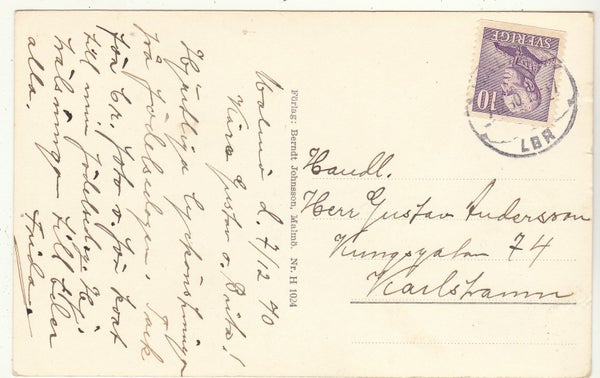 Malmö d. 7/12 40
Kära Gustav o. Brita!
Hjärtliga lyckönskningar
på födelsedagen. Tack
för br, foto o. för kort
till min födelsedag. Hj.
hälsningar till Eder
alla.
Frida.
Förlag: Berndt Johnsson, Malmö. Nr. H 1024
SVERIGE
10
LBR
Handl.
Herr Gustav Andersson
Kungsgatan 74
Karlshamn